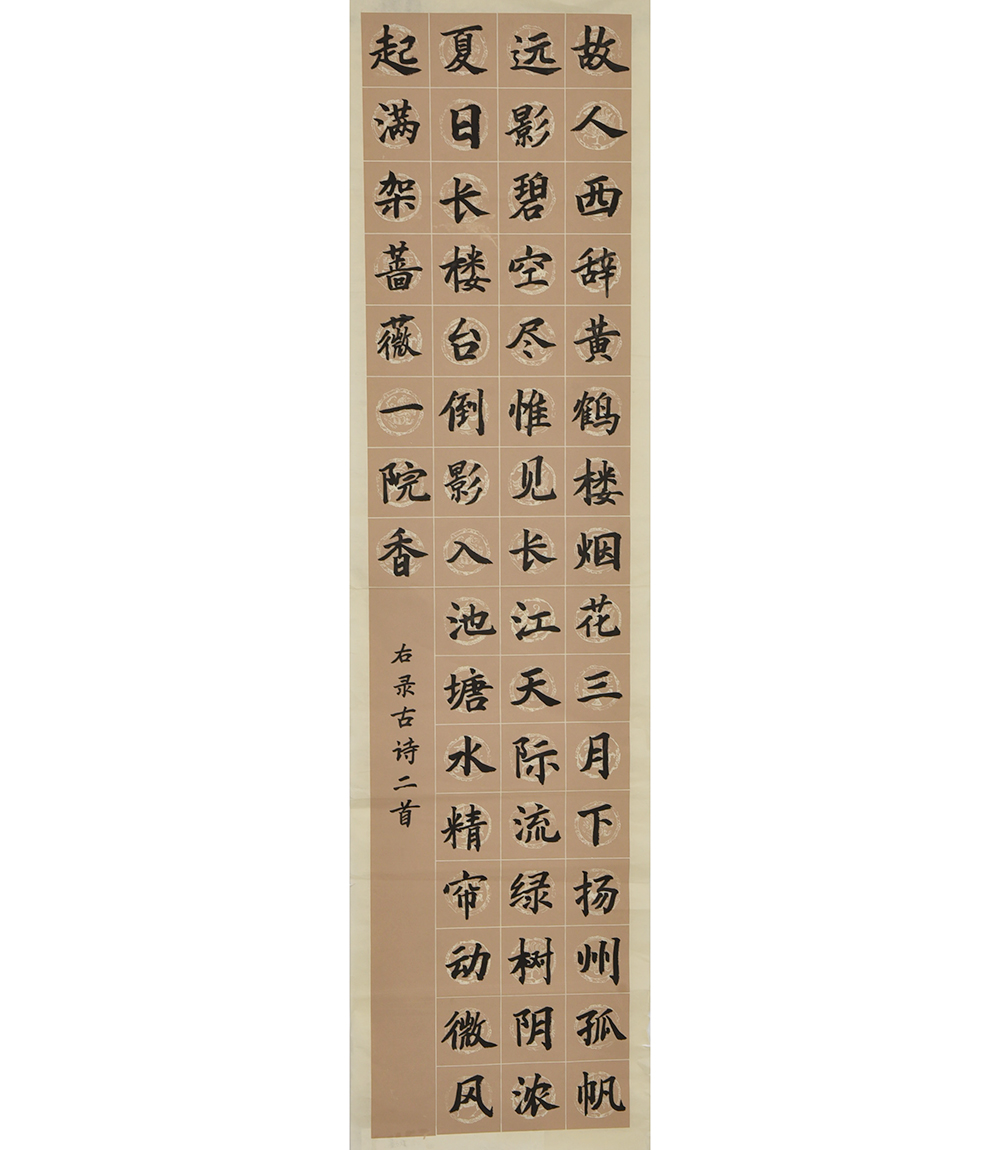 故人西辞黄鹤楼烟花三月下扬州孤帆
远影碧空尽惟见长江天际流绿树阴浓
夏日长楼台倒影入池塘水精帘动微风
起满架蔷薇一院香
右录古诗二首